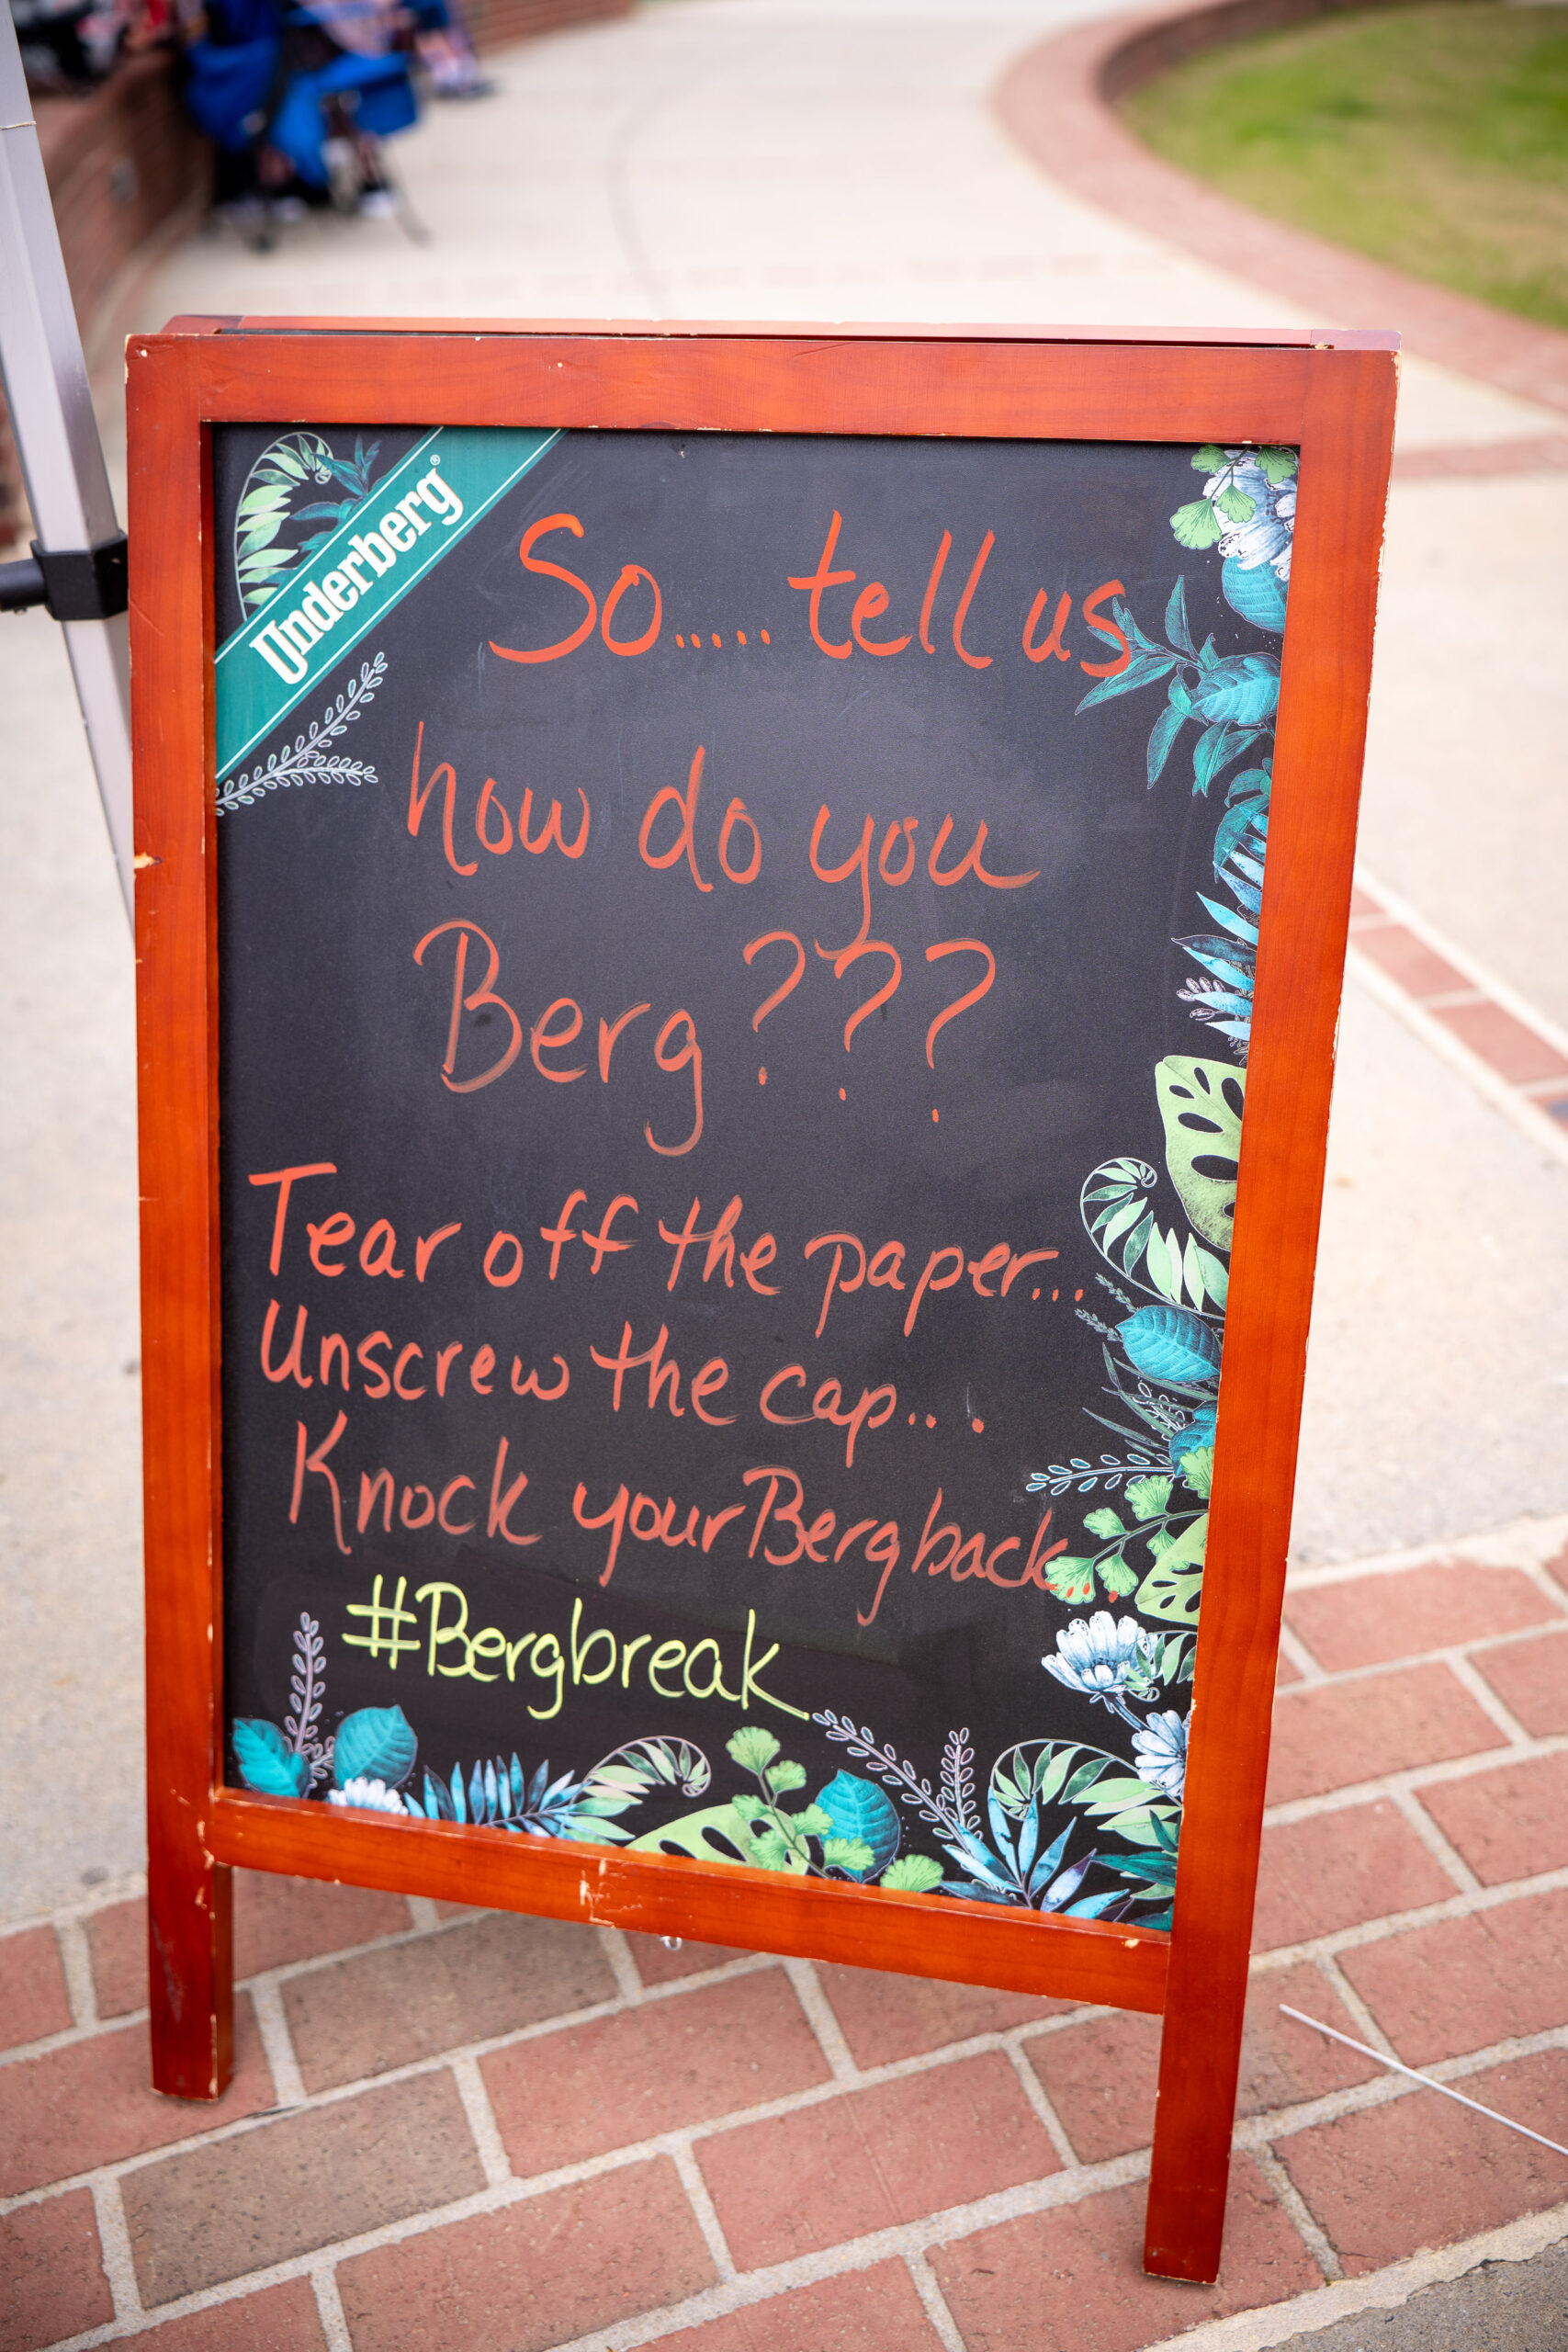 Underberg®
So.....tell us
how do you
Berg???
Tear off the paper...
Unscrew the cap...
Knock your Berg back..
#Bergbreak